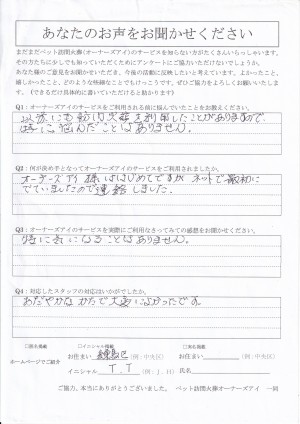 あなたのお声をお聞かせください
まだまだペット訪問火葬(オーナーズアイ)のサービスを知らない方がたくさんいらっしゃいます。
その方たちに少しでも知っていただくためにアンケートにご協力いただけないでしょうか。
あなた様のご意見をお聞かせいただき、今後の活動に反映したいと考えています。よかったこと、
嬉しかったこと、どのような些細なことでもけっこうです。ぜひご協力をよろしくお願いいたしま
す。(できるだけ具体的に書いていただけると助かります)
Q1:オーナーズアイのサービスをご利用される前に悩んでいたことをお教えください。
以前にも訪問火葬を利用したことがありますので、
特に悩んだことはありません。
Q2:何が決め手となってオーナーズアイのサービスをご利用されましたか。
オーナーズアイ様ははじめてですが ネットで最初に
でていましたので連絡しました。
Q3:オーナーズアイのサービスを実際にご利用なさってみての感想をお聞かせください。
特に気になることはありません。
Q4:対応したスタッフの対応はいかがでしたか。
おだやかなかたで大変によかったです。
□匿名掲載 □イニシャル掲載 □実名掲載
ホームページでご紹介
お住まい 練馬区 (例:中央区) お住まい (例:中央区)
イニシャル T.T (例:J.H) 氏名
ご協力、本当にありがとうございました。 ペット訪問火葬オーナーズアイ 一同